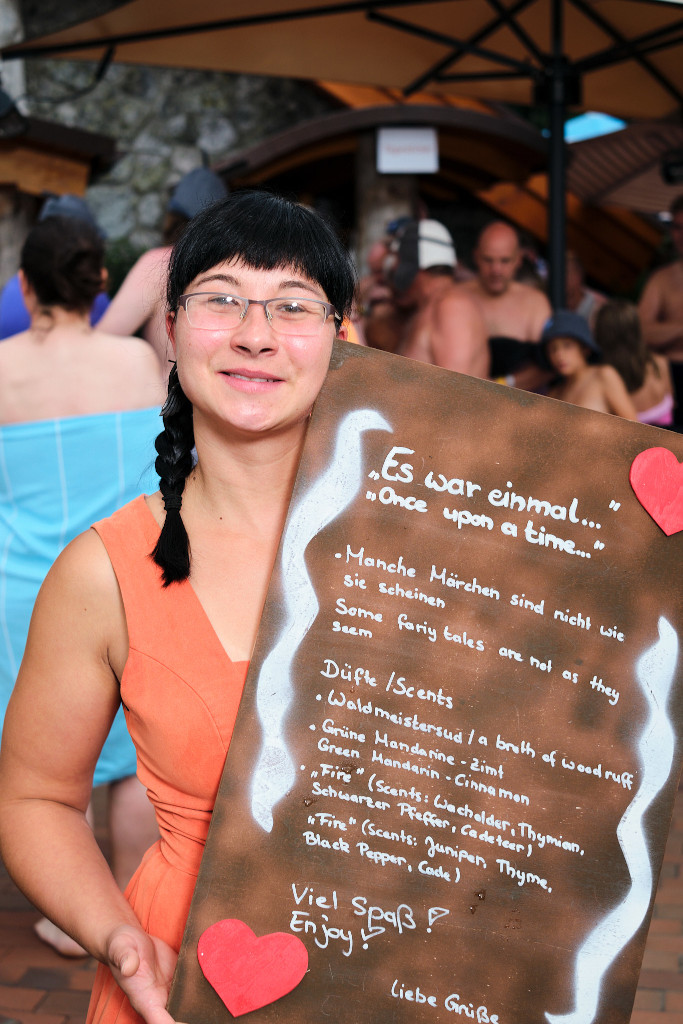 „Es war einmal..."
„Once upon a time..."
• Manche Märchen sind nicht wie
sie scheinen
Some fariy tales are not as they
seem
Düfte /Scents
• Waldmeistersud / a broth of woodruff
• Grüne Mandarine - Zimt
Green Mandarin - Cinnamon
• „Fire" (Scents: Wacholder, Thymian,
Schwarzer Pfeffer, Cadeteer)
„Fire" (Scents: Juniper, Thyme,
Black Pepper, Cade)
Viel Spaß !
Enjoy !
liebe Grüße